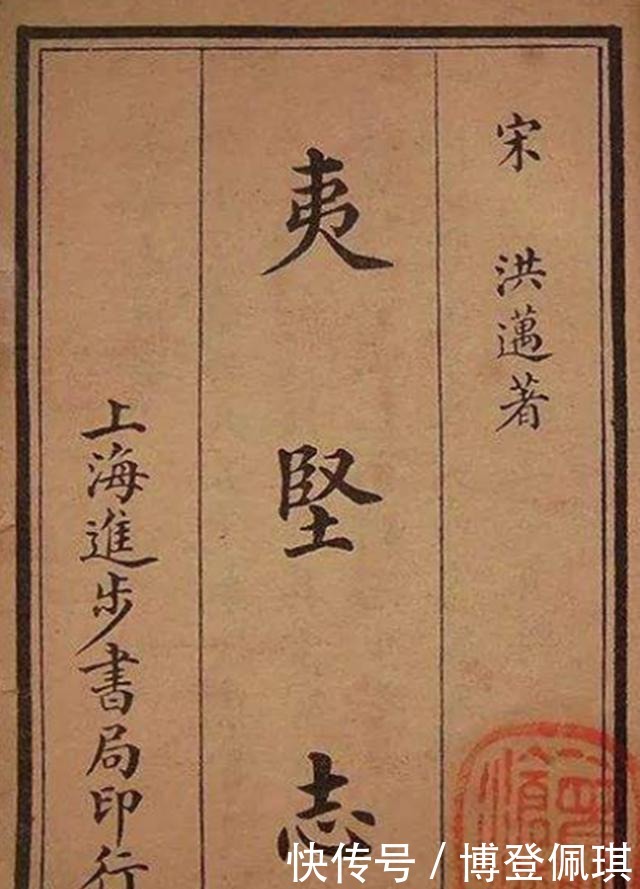 宋 洪邁著
夷堅志
上海進步書局印行
快传号 / 博登佩琪